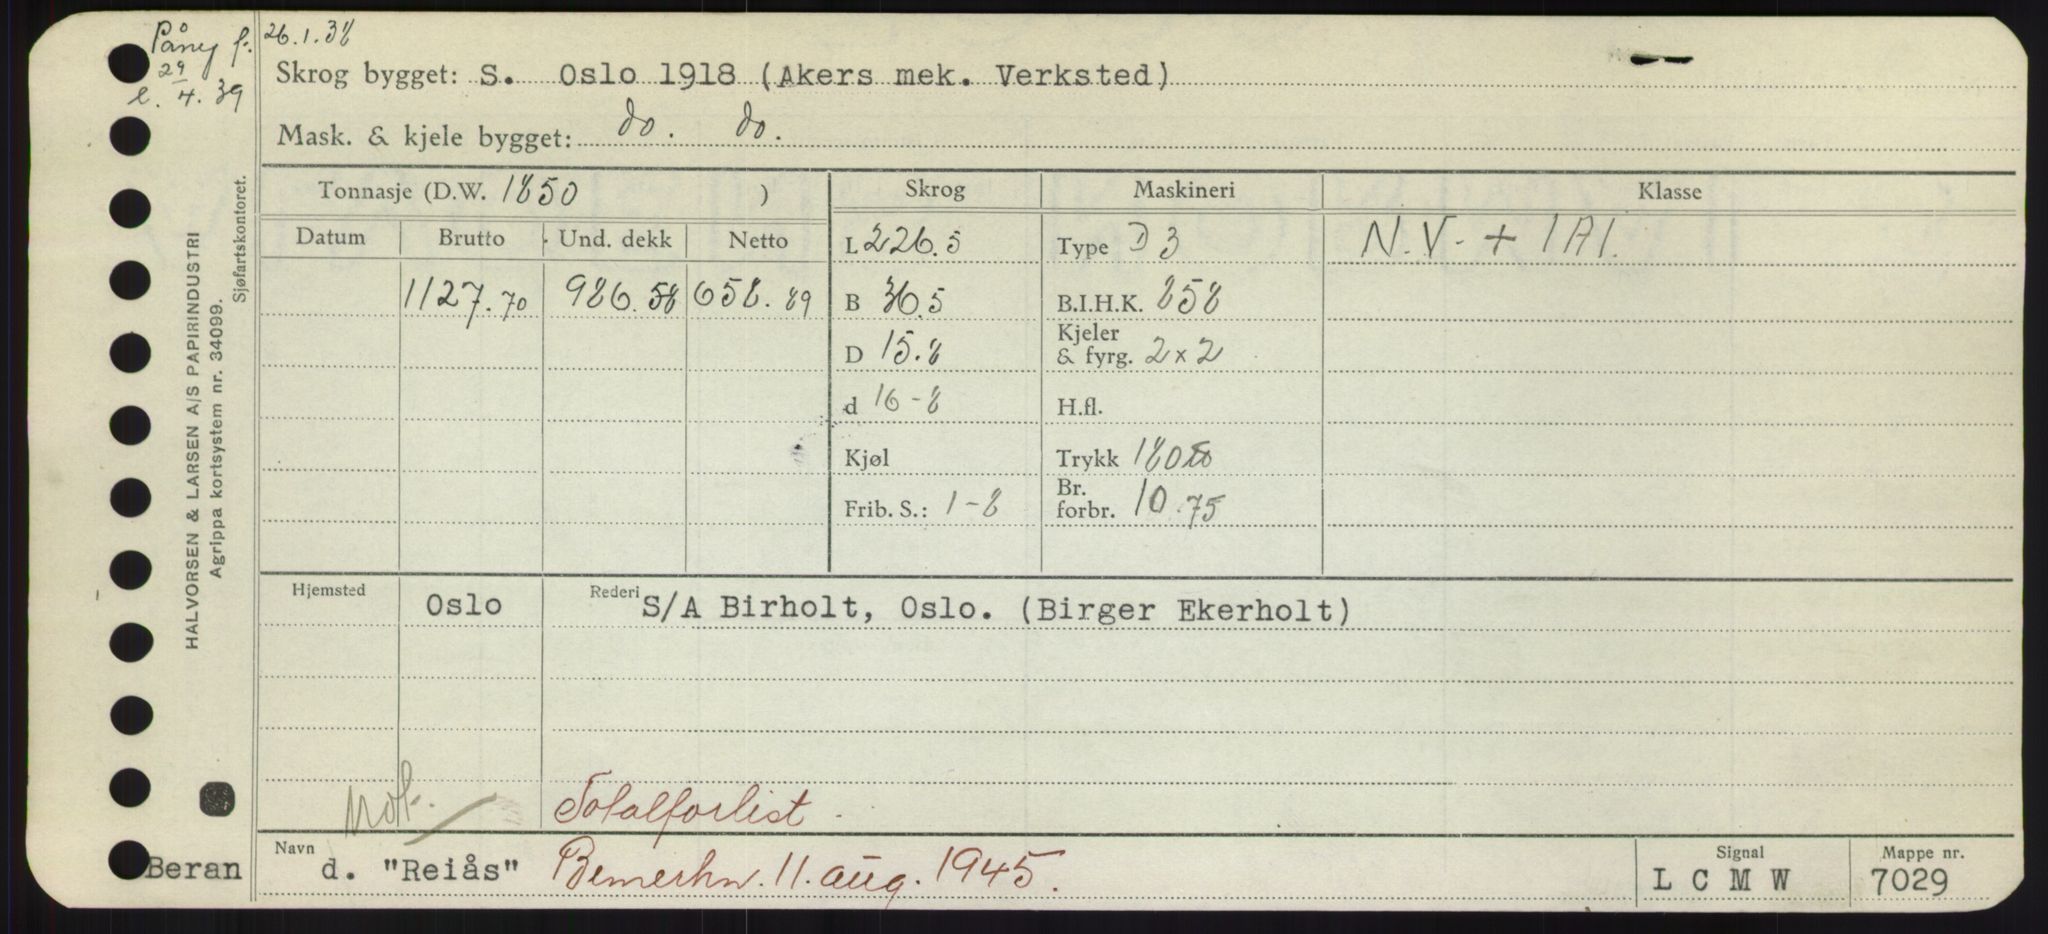 Påny f. 26.1.38
29
e. 4. 39
Skrog bygget: S. Oslo 1918 (Akers mek. Verksted)
Mask. & kjele bygget: do. do.
HALVORSEN & LARSEN A/S PAPIRINDUSTRI
Agrippa kortsystem nr. 34099.
Sjøfartskontoret.
Tonnasje (D.W. 1850 ) Skrog Maskineri Klasse
Datum Brutto Und. dekk Netto L 226.5 Type D 3 N.V. + 1A1.
1127.70 986.58 658.89 B 36.5 B.I.H.K. 858
D 15.8 Kjeler & fyrg. 2x2
d 16-8 H.fl.
Kjøl Trykk 180
Frib. S.: 1-8 Br. forbr. 10.75
Hjemsted Oslo Rederi S/A Birholt, Oslo. (Birger Ekerholt)
Totalforlist.
Beran Navn d. "Reiås" Bemerkn. 11. aug. 1945. Signal L C M W Mappe nr. 7029